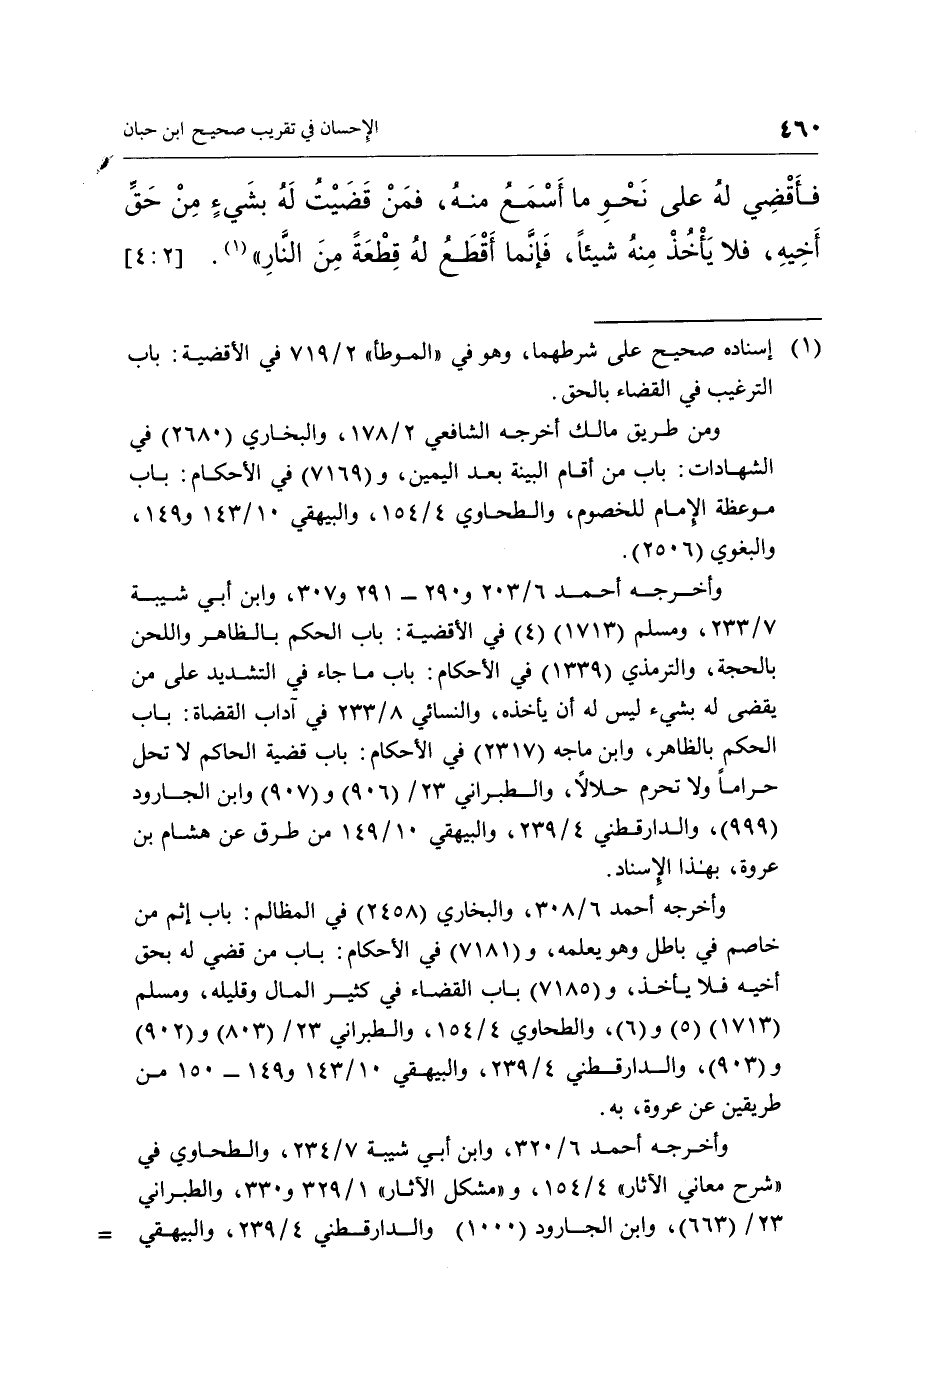 ٤٦٠ الإحسان في تقريب صحيح ابن حبان
فَأَقْضِي لهُ على نَحْوِ ما أَسْمَعُ منهُ، فمَنْ قَضَيْتُ لَهُ بشَيءٍ مِنْ حَقِّ
أَخِيهِ، فلا يَأْخُذْ مِنهُ شيئاً، فَإِنَّما أَقْطَعُ لهُ قِطْعَةً مِنَ النَّارِ»(١). [٤:٢]
(١) إسناده صحيح على شرطهما، وهو في «الموطأ» ٧١٩/٢ في الأقضية: باب
الترغيب في القضاء بالحق.
ومن طريق مالك أخرجه الشافعي ١٧٨/٢، والبخاري (٢٦٨٠) في
الشهادات: باب من أقام البينة بعد اليمين، و(٧١٦٩) في الأحكام: باب
موعظة الإمام للخصوم، والطحاوي ١٥٤/٤، والبيهقي ١٤٣/١٠ و١٤٩،
والبغوي (٢٥٠٦).
وأخرجه أحمد ٢٠٣/٦ و٢٩٠ – ٢٩١ و٣٠٧، وابن أبي شيبة
٢٣٣/٧، ومسلم (١٧١٣) (٤) في الأقضية: باب الحكم بالظاهر واللحن
بالحجة، والترمذي (١٣٣٩) في الأحكام: باب ما جاء في التشديد على من
يقضى له بشيء ليس له أن يأخذه، والنسائي ٢٣٣/٨ في آداب القضاة: باب
الحكم بالظاهر، وابن ماجه (٢٣١٧) في الأحكام: باب قضية الحاكم لا تحل
حراماً ولا تحرم حلالاً، والطبراني ٢٣/ (٩٠٦) و(٩٠٧) وابن الجارود
(٩٩٩)، والدارقطني ٢٣٩/٤، والبيهقي ١٤٩/١٠ من طرق عن هشام بن
عروة، بهذا الإسناد.
وأخرجه أحمد ٣٠٨/٦، والبخاري (٢٤٥٨) في المظالم: باب إثم من
خاصم في باطل وهو يعلمه، و(٧١٨١) في الأحكام: باب من قضي له بحق
أخيه فلا يأخذ، و(٧١٨٥) باب القضاء في كثير المال وقليله، ومسلم
(١٧١٣) (٥) و(٦)، والطحاوي ١٥٤/٤، والطبراني ٢٣/ (٨٠٣) و(٩٠٢)
و(٩٠٣)، والدارقطني ٢٣٩/٤، والبيهقي ١٤٣/١٠ و١٤٩ – ١٥٠ من
طريقين عن عروة، به.
وأخرجه أحمد ٣٢٠/٦، وابن أبي شيبة ٢٣٤/٧، والطحاوي في
«شرح معاني الآثار» ١٥٤/٤، و«مشكل الآثار» ٣٢٩/١ و٣٣٠، والطبراني
٢٣/ (٦٦٣)، وابن الجارود (١٠٠٠) والدارقطني ٢٣٩/٤، والبيهقي =